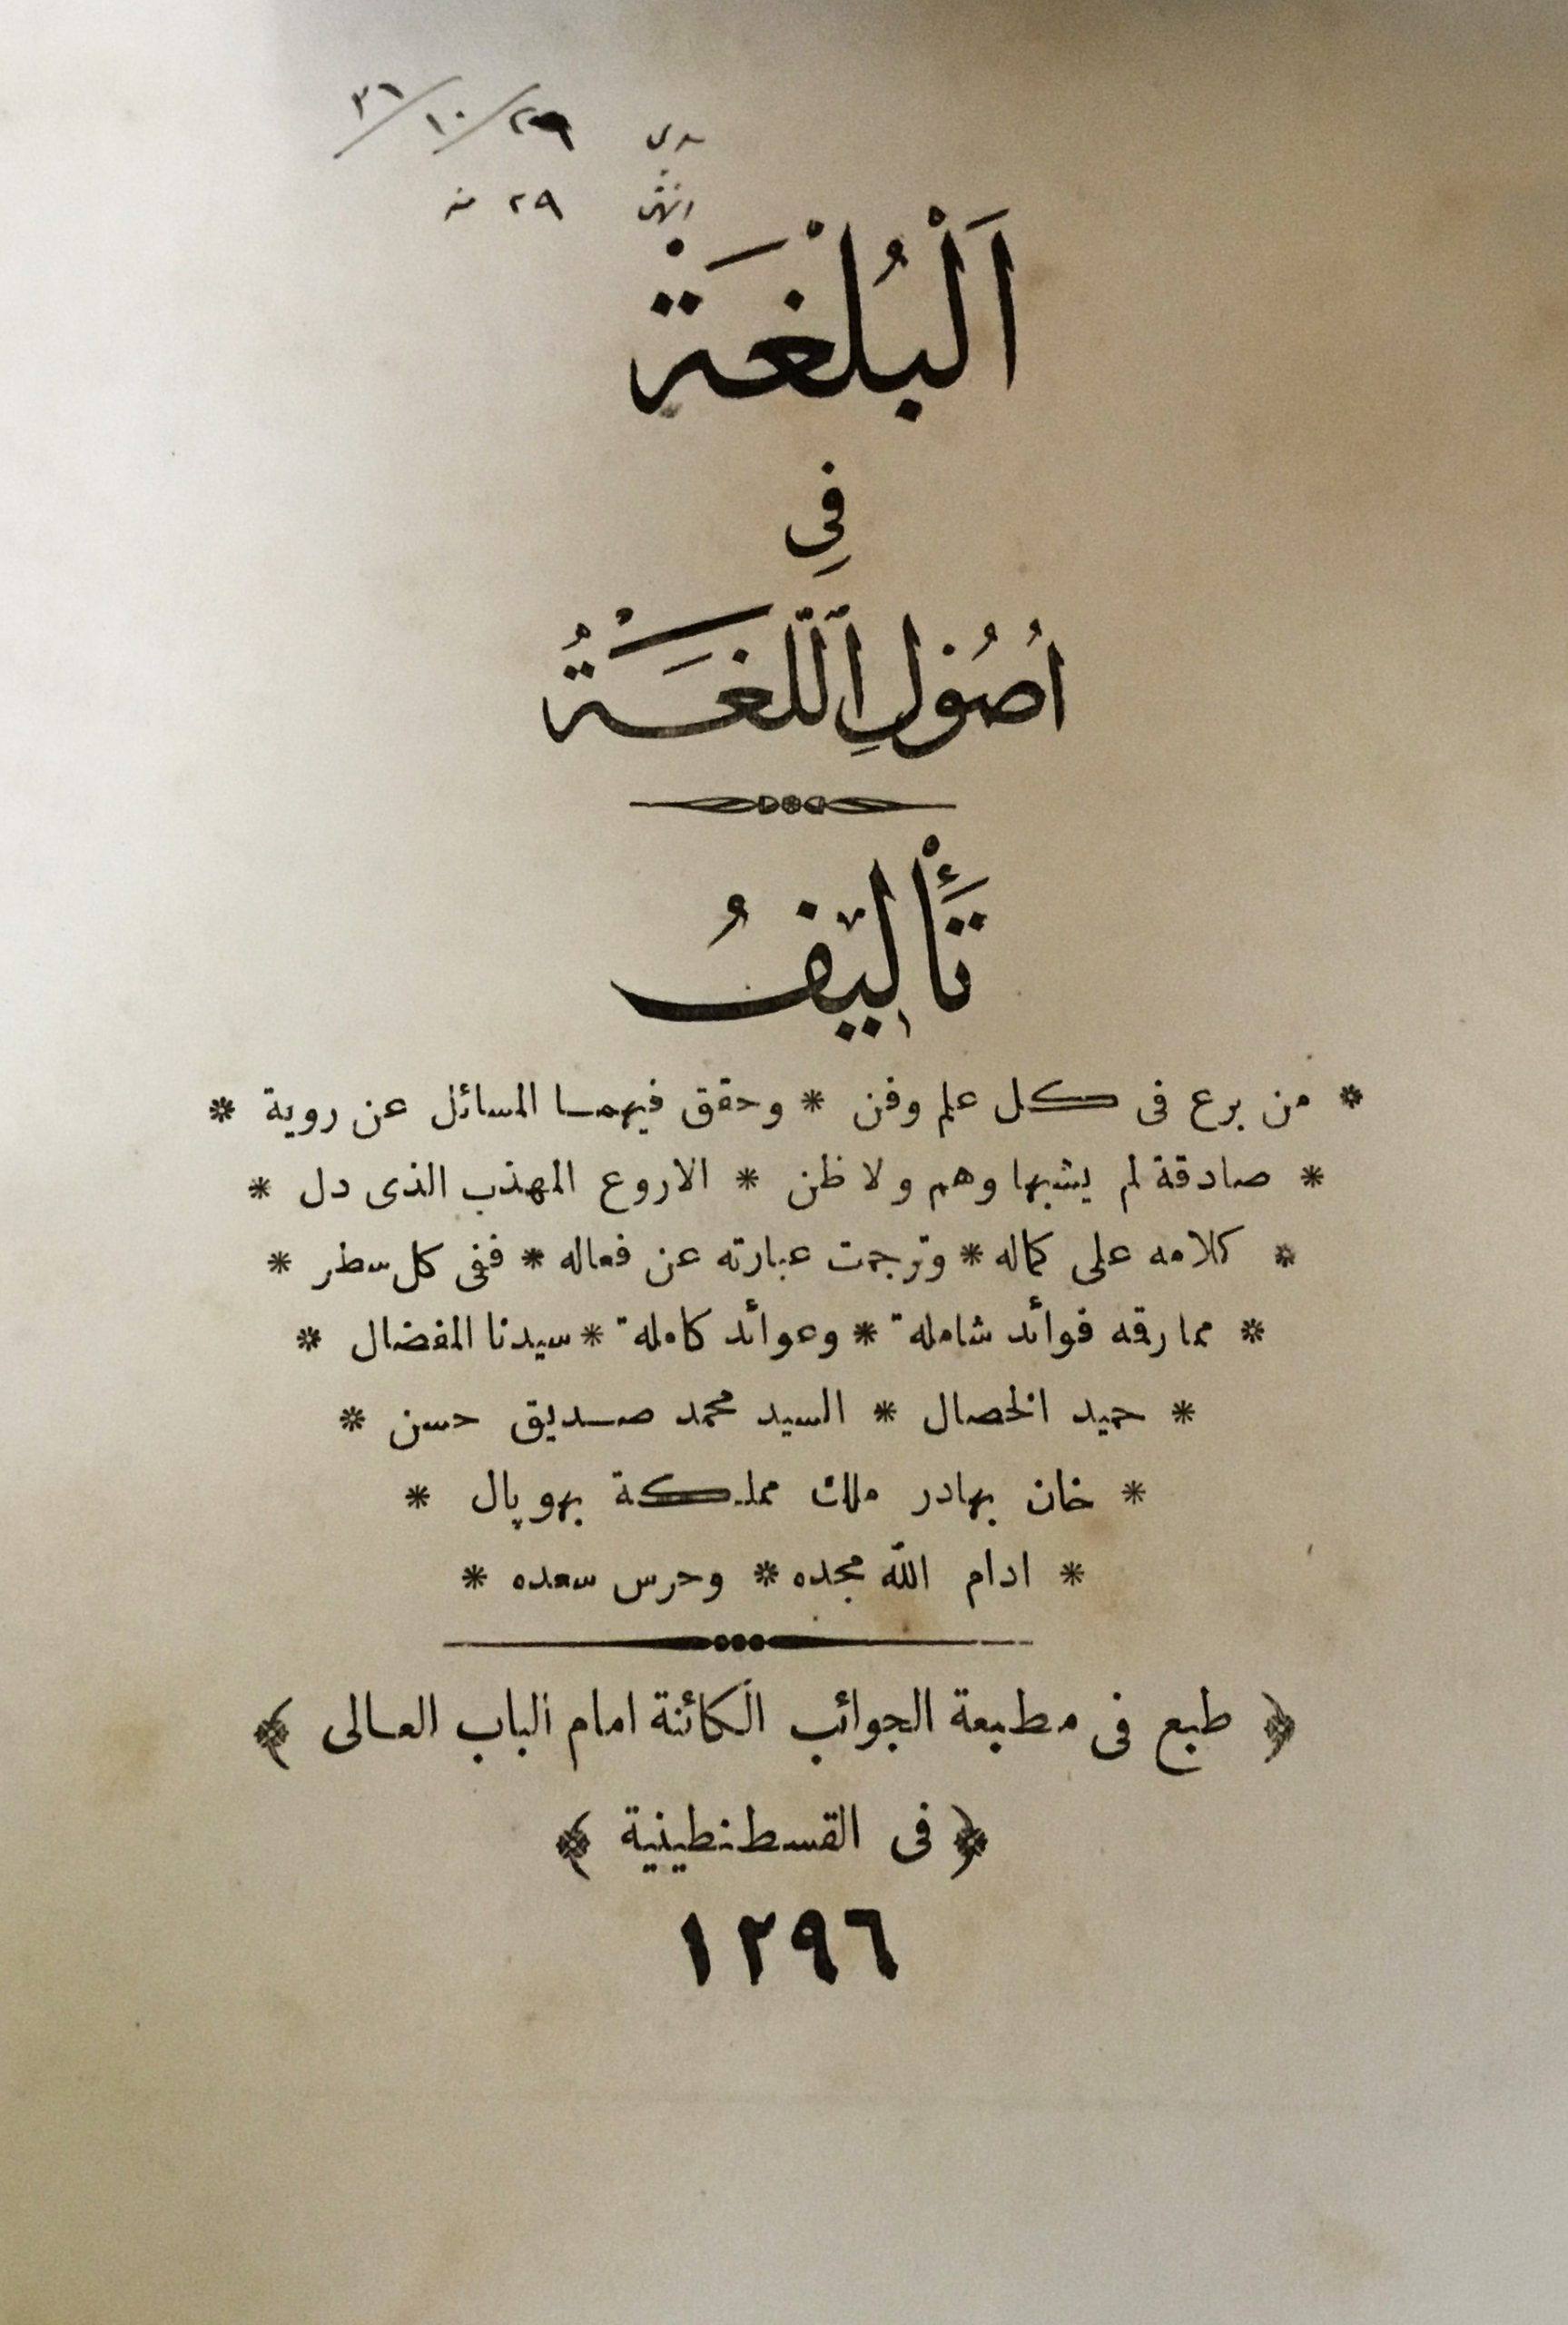 ٢٩/١٠/٣١
٢٩ منه
اَلْبُلْغَةْ
فِي
اُصُوْلِ ٱللّغَةْ
تَأْلِيْفُ
* من برع فى كل علم وفن * وحقق فيهما المسائل عن روية *
* صادقة لم يشبها وهم ولا ظن * الاروع المهذب الذى دل *
* كلامه على كماله * وترجمت عبارته عن فعاله * ففى كل سطر *
* مما رقه فوائد شاملة * وعوائد كاملة * سيدنا المفضال *
* حميد الخصال * السيد محمد صديق حسن *
* خان بهادر ملك مملكة بهوپال *
* ادام الله مجده * وحرس سعده *
﴿ طبع فى مطبعة الجوائب الكائنة امام الباب العالى ﴾
﴿ فى القسطنطينية ﴾
١٢٩٦